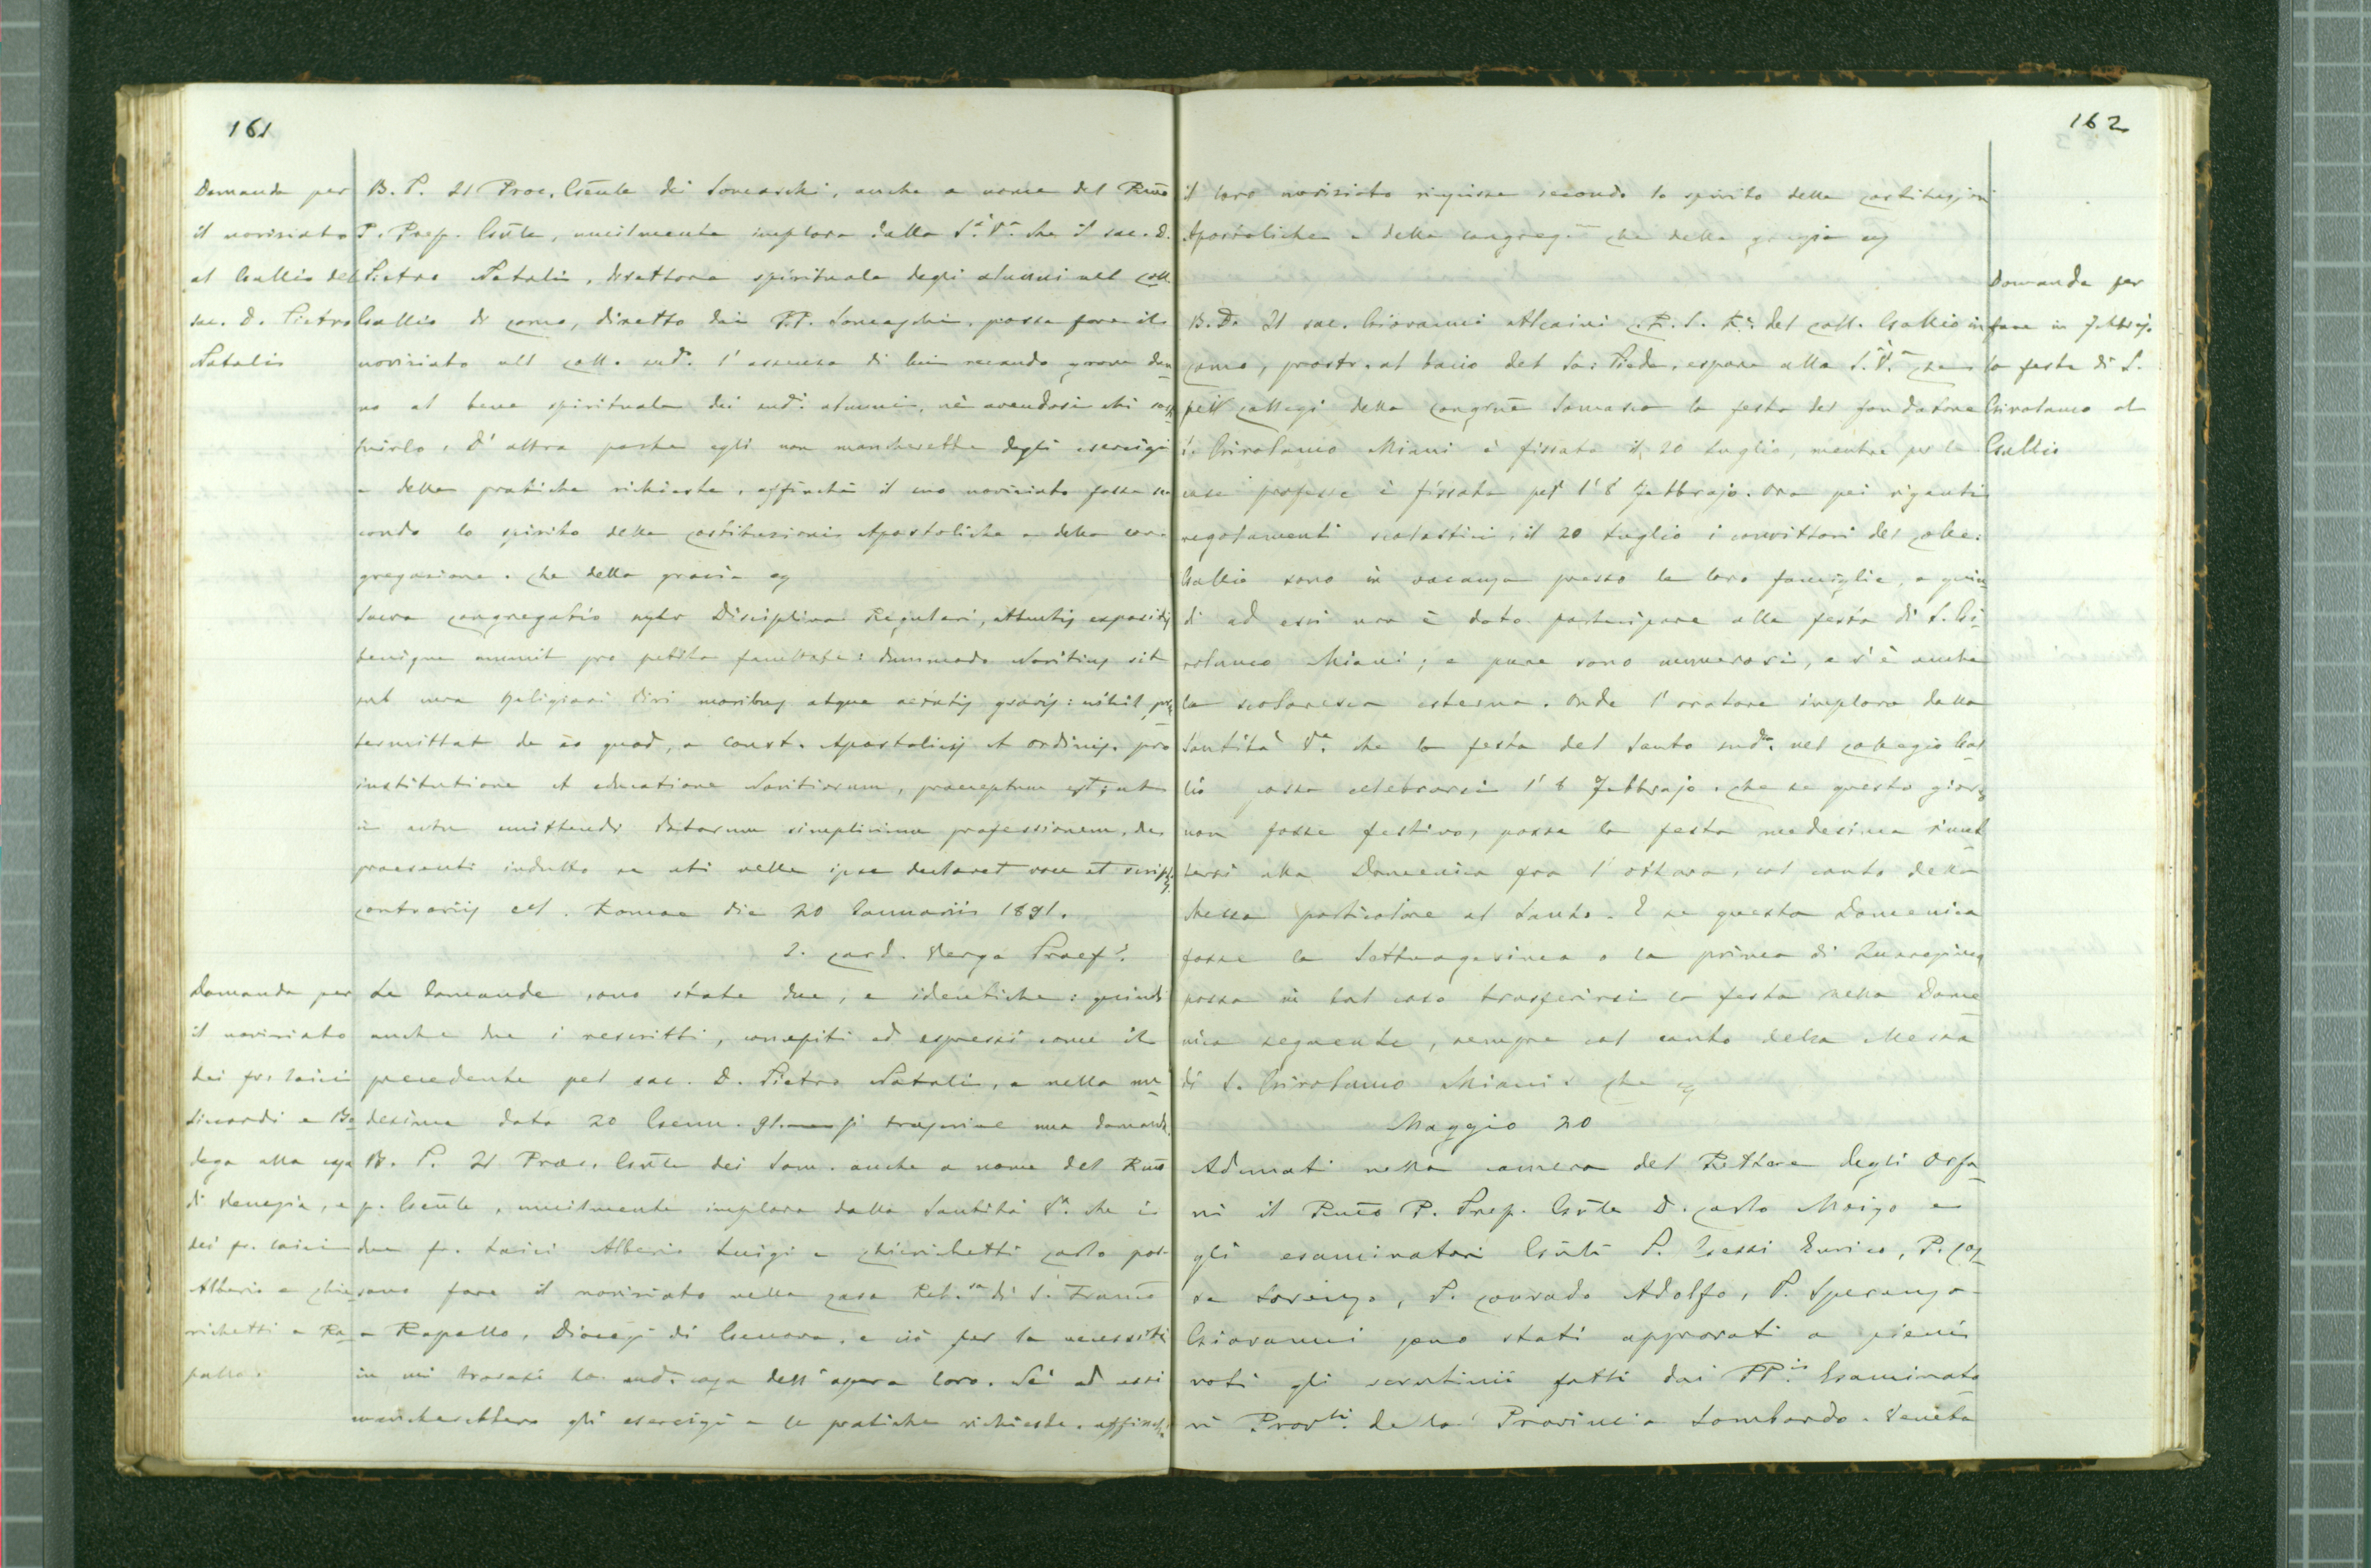 161
Domanda per
il noviziato
al Gallio del
sac. D. Pietro
Natalis
B. P. Il Proc. Gēnle dei Somaschi, anche a nome del Rmō
P. Prep. Gnīle, umilmente implora dalla S.tà V.a che il sac. D.
Pietro Natali, direttore spirituale degli alunni nel Coll.
Gallio di Como, diretto dai PP. Somaschi, possa fare il
noviziato nel Coll. sud.o l'assenza di lui recando grave dan
no al bene spirituale dei sud.i alunni, nè avendosi chi sosti
tuirlo. D'altra parte egli non mancherebbe degli esercizi
e delle pratiche richieste, affinchè il suo noviziato fosse se
condo lo spirito delle Costituzioni Apostoliche e della con
gregazione. Che della grazia eg
Sacra Congregatio super Disciplina Regulari, attentis expositis
benigne annuit pro petita facultate: dummodo Novitius sit
sub cura Religiosi Viri moribus atque aetatis gravis: nihil prae
termittat de eo quod, a Const. Apostolicis et Ordinis, pro
institutione et educatione Novitiorum, praeceptum est; ut
in actu emittendi Votorum simplicium professionem, de
praesenti indulto se uti velle ipse declaret voce et scriptis
contrariis etc. Romae die 20 Januarii 1891.
I. Card. Verga Praef.s
Domanda per
il noviziato
dei fr. laici
Siccardi e Bo
dega alla casa
di Venezia, e
dei fr. laici
Alberio e Chie
richetti a Ra
pallo.
Le domande sono state due, e identiche: quindi
anche due i rescritti, concepiti ed espressi come il
precedente pel sac. D. Pietro Natali, e nella me
desima data 20 Genn. 91. si trascrive una domanda
B. P. Il Proc. Gnīle dei Som. anche a nome del Rmō
p. Gēnle, umilmente implora dalla Santità V.a che i
due fr. laici Alberio Luigi e Chierichetti Carlo pos-
sano fare il noviziato nella casa Rel.sa di S. Francō
a Rapallo, Diocesi di Genova, e ciò per la necessità
in cui trovasi la sud.a casa dell'opera loro. Nè ad essi
mancherebbero gli esercizi e le pratiche richieste, affinchè
162
il loro noviziato riuscisse secondo lo spirito delle Costituzioni
Apostoliche e della Congreg.ne Che della grazia eg
B. P. Il sac. Giovanni Alcaini C.R.S. R.e del Coll. Gallio in
Como, prostr. al bacio del Sa: Piede, espone alla S. V. che
pei collegi della Congrnē Somasca la festa del fondatore
S. Girolamo Miani è fissata il 20 Luglio, mentre per le
case professe è fissata pel l'8 Febbrajo. Ora pei vigenti
regolamenti scolastici, il 20 Luglio i convittori del Colle:
Gallio sono in vacanza presso le loro famiglie, e quin
di ad essi non è dato partecipare alla festa di S. Gi
rolamo Miani; e pure sono numerosi, e v'è anche
la scolaresca esterna. Onde l'oratore implora dalla
Santità V.a che la festa del Santo sud.o nel Collegio Gal
lio possa celebrarsi l'8 Febbrajo. Che se questo giorno
non fosse festivo, possa la festa medesima rimet
tersi alla Domenica fra l'ottava, col canto della
Messa particolare al Santo. E se questa Domenica
fosse la Settuagesima o la prima di Quaresima,
possa in tal caso trasferirsi la festa nella Dome
nica seguente, sempre col canto della Messa
di S. Girolamo Miani. Che eg
Domanda per
fare in Febbrajo
la festa di S.
Girolamo al
Gallio
Maggio 20
Adunati nella camera del Rettore degli Orfa
ni il Rmō P. Prep. Gnīle D. Carlo Moizo e
gli esaminatori Gnīli P. Gessi Enrico, P. Cos
sa Lorenzo, P. Conrado Adolfo, P. Speranza
Giovanni sono stati approvati a pieni
voti gli scrutinii fatti dai PP.i Esaminato
ri Prov.li de la Provincia Lombardo-Veneta